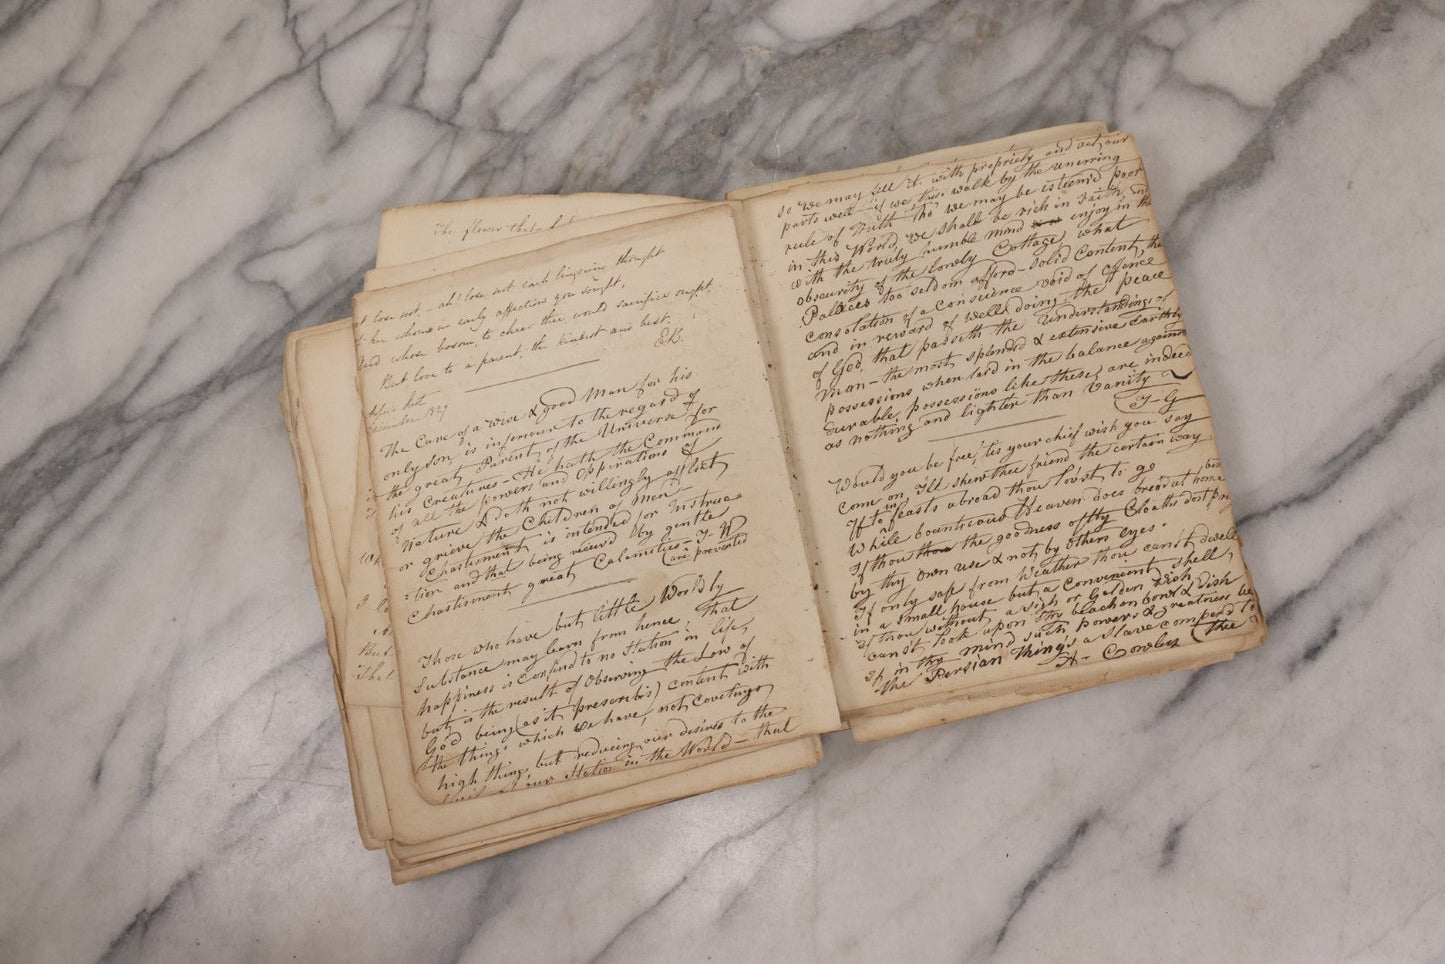 The flower that
lose not, ah! lose not each lingering thought
her whom in early affection you sought,
And whose bosom, to cheer thee, would sacrifice ought,
But love to a parent, the kindest and best.
E.B.
1829
The Care of a wise & good Man for his
only son is inferiour to the regard of
the great Parent of the Universe for
his Creatures – He hath the Command
of all the Powers and Opperations of
Nature & doth not willingly aflict
or grieve the Children of Men –
Chastisment is intended for Instruc=
=tion and that being receivd by gentle
Chastisment great Calamities I–W
(are prevented
Those who have but little Worldly
Substance may learn from hence; that
happiness is Confind to no Station in life,
but is the result of Observing the Law of
God being (as it prescribes) content with
the things which we have, not Coveting
high things, but reducing our desires to the
our Station in the World – that
so we may fill it with propriety and act our
parts well – if we thus walk by the unerring
rule of Truth tho' we may be esteem'd poor
in this World, we shall be rich in Faith, and
with the truly humble mind enjoy in the
obscurity of the lonely Cottage, what
Palaces too seldom afford – Solid Content, the
Consolation of a Conscience void of offence
and in reward of well doing the peace
of God, that passeth the Understandings of
Man – the most splendid & extensive Earthly
possessions when laid in the balance against
durable possessions like these, are indeed
as nothing and lighter than Vanity
J–G
Would you be free, 'tis your chief wish you say
come on, I'll shew thee friend the certain way
If to feasts abroad thou lov'st to go
While bounteous Heaven does bread at home
If thou the goodness of thy Cloaths dost prize
by thy own use & not by others Eyes.
If only safe from Weather thou can'st dwell
in a small house but a Convenient shell
If thou without a sigh or Golden Wish
canst look upon thy beachen bowl & Dish
If in thy mind such power & greatness be
the Persian King's a Slave compar'd to
A– Cowley (thee